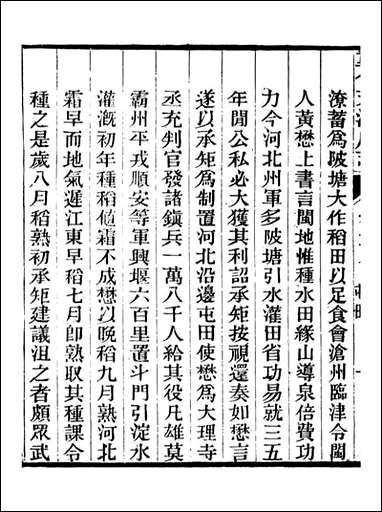 潦蓄爲陂塘大作稻田以足食會滄州臨津令閩
人黃懋上書言閩地惟種水田緣山導泉倍費功
力今河北州軍多陂塘引水灌田省功易就三五
年閒公私必大獲其利詔承矩按視還奏如懋言
遂以承矩爲制置河北沿邊屯田使懋爲大理寺
丞充判官發諸鎭兵一萬八千人給其役凡雄莫
霸州平戎順安等軍興堰六百里置斗門引淀水
灌漑初年種稻値霜不成懋以晚稻九月熟河北
霜早而地氣遲江東早稻七月卽熟取其種課令
種之是歲八月稻熟初承矩建議沮之者頗眾武